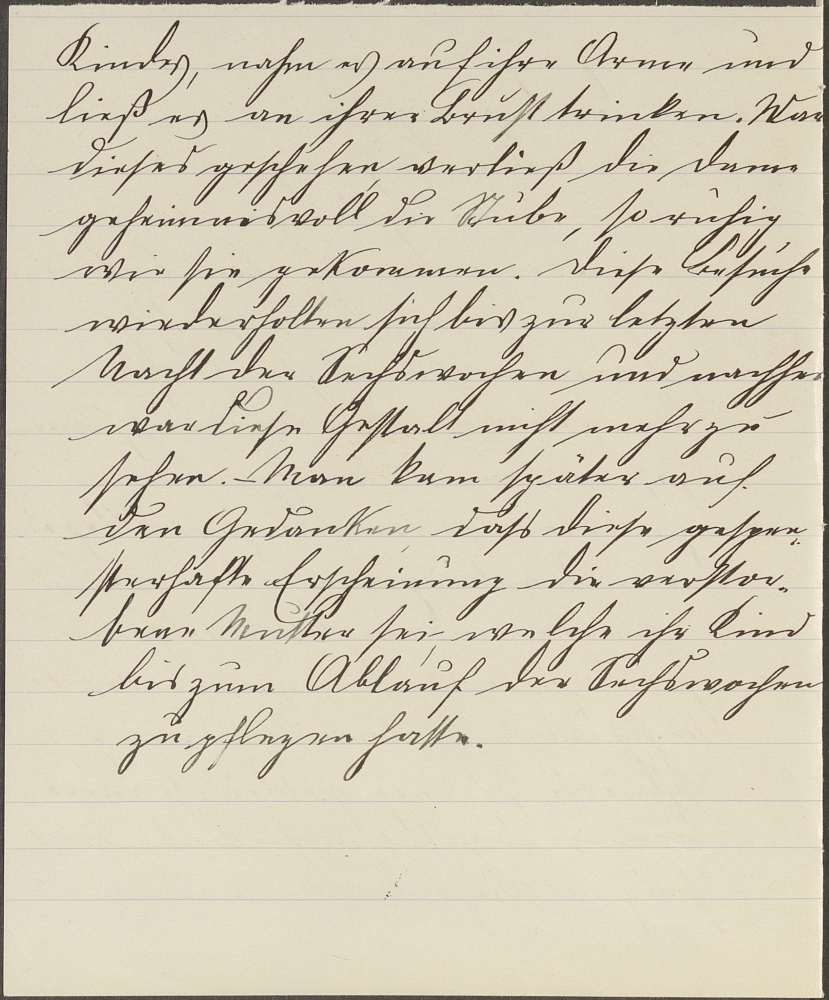 Kindes, nahm es auf ihre Arme und
ließ es an ihrer Brust trinken. War
dieses geschehen, verließ die Dame
geheimnisvoll die Stube, so ruhig
wie sie gekommen. Diese Besuche
wiederholten sich bis zur letzten
Nacht der Sechswochen und nachher
war diese Gestalt nicht mehr zu
sehen. – Man kam später auf
den Gedanken, dass diese gespen-
sterhafte Erscheinung die verstor-
bene Mutter sei, welche ihr Kind
bis zum Ablauf der Sechswochen
zu pflegen hatte.